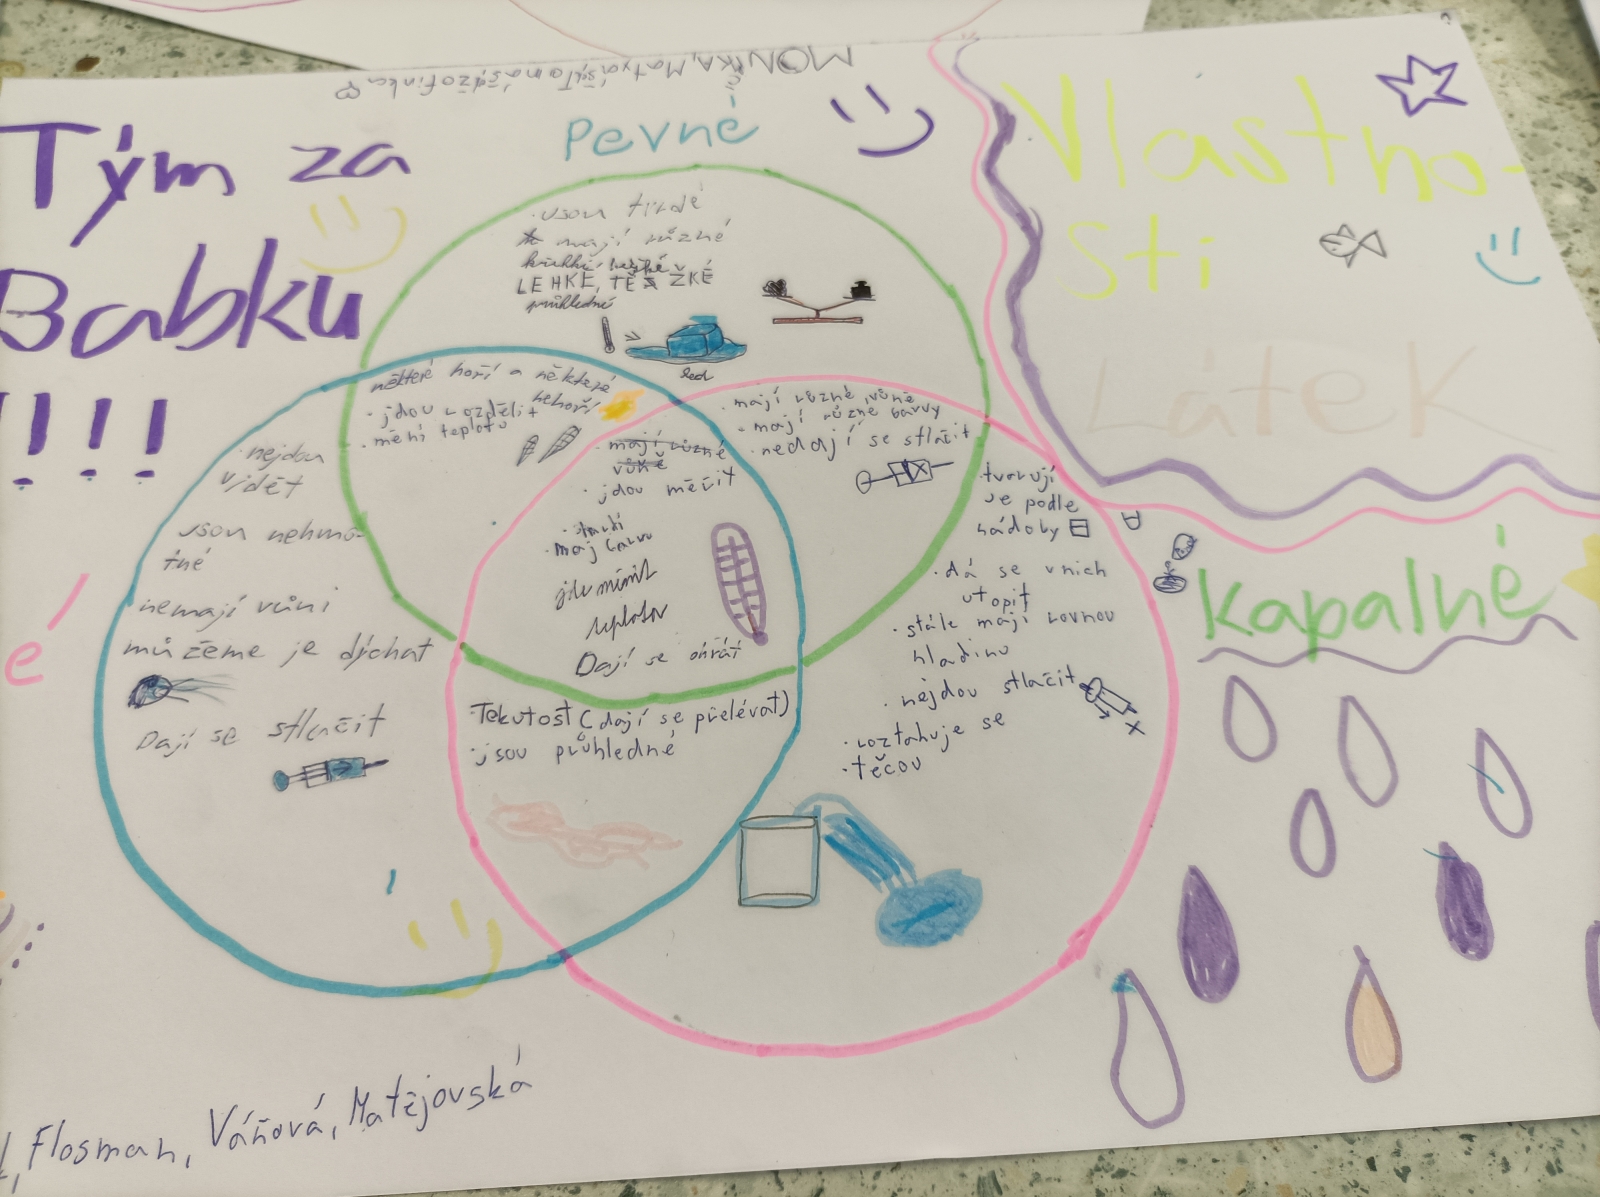 MONIKA, Matyáš, Tomáš, džofinka
Tým za
Babku
!!!
Pevné
Vlastno-
sti
Látek
Kapalné
é
· jsou tvrdé
mají různé
LEHKÉ, TĚŽKÉ
průhledné
led
některé hoří a některé
nehoří
· jdou rozdělit
· mění teplotu
· mají různé vůně
· mají různé barvy
· nedají se stlačit
mají různé
vůně
· jdou měřit
· maj barvu
jde měnit
teplotu
Dají se ohřát
· nejdou
vidět
jsou nehmo-
tné
nemají vůni
můžeme je dýchat
Dají se stlačit
· Tekutost (dají se přelévat)
· jsou průhledné
tvarují
se podle
nádoby
· dá se v nich
utopit
· stále mají rovnou
hladinu
· nejdou stlačit
· roztahuje se
· těčou
, Flosman, Váňová, Matějovská